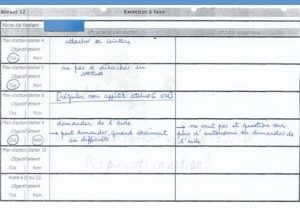 Atelier 12 Exercices à faire
Nom de l'enfant
Plan d'action atelier 4
attacher sa ceinture
Objectif atteint
Oui Non
Plan d'action atelier 5
ne pas se détacher en
voiture
Objectif atteint
Oui Non
Plan d'action atelier 8
[réguler son appétit atelier 6 OK]
Objectif atteint
Oui Non
Plan d'action atelier 9
demander de l'aide
→ peut demander quand vraiment
en difficulté
ne veut pas et question sur
plus d'autonomie ou demander de
l'aide
Objectif atteint
Oui Non
Plan d'action atelier 10
Objectif atteint
Oui Non
Autre (8 ou 12)
Objectif atteint
Oui Non